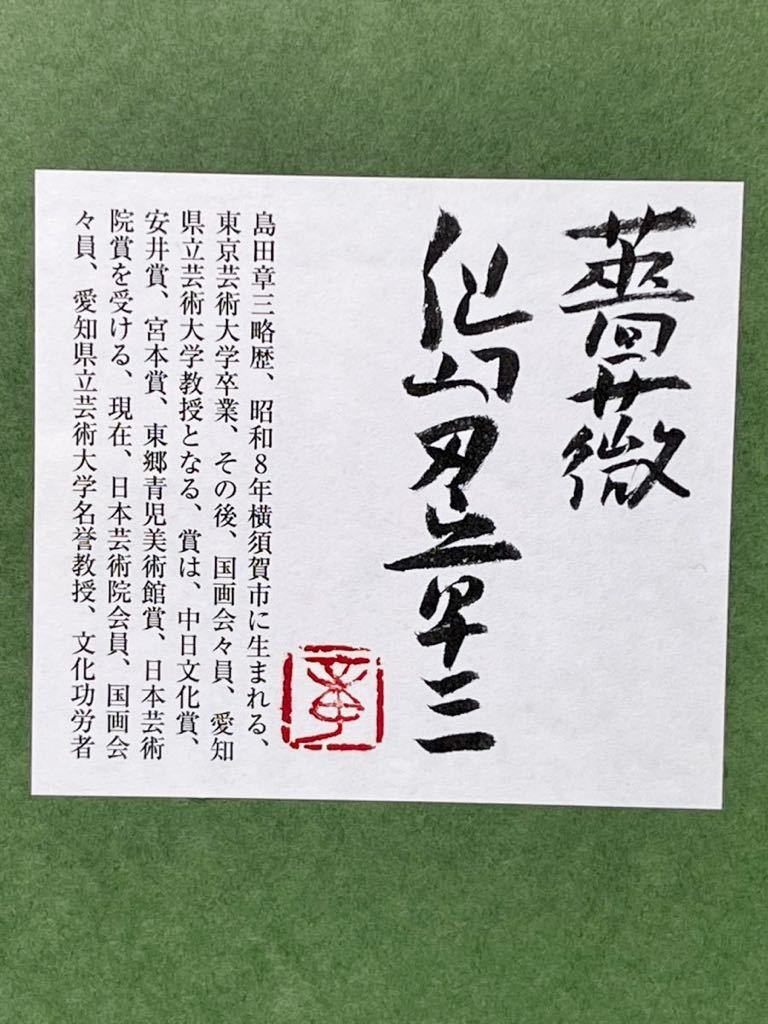 薔薇
島田章三
章
島田章三略歴、昭和8年横須賀市に生まれる、
東京芸術大学卒業、その後、国画会々員、愛知
県立芸術大学教授となる、賞は、中日文化賞、
安井賞、宮本賞、東郷青児美術館賞、日本芸術
院賞を受ける、現在、日本芸術院会員、国画会
々員、愛知県立芸術大学名誉教授、文化功労者